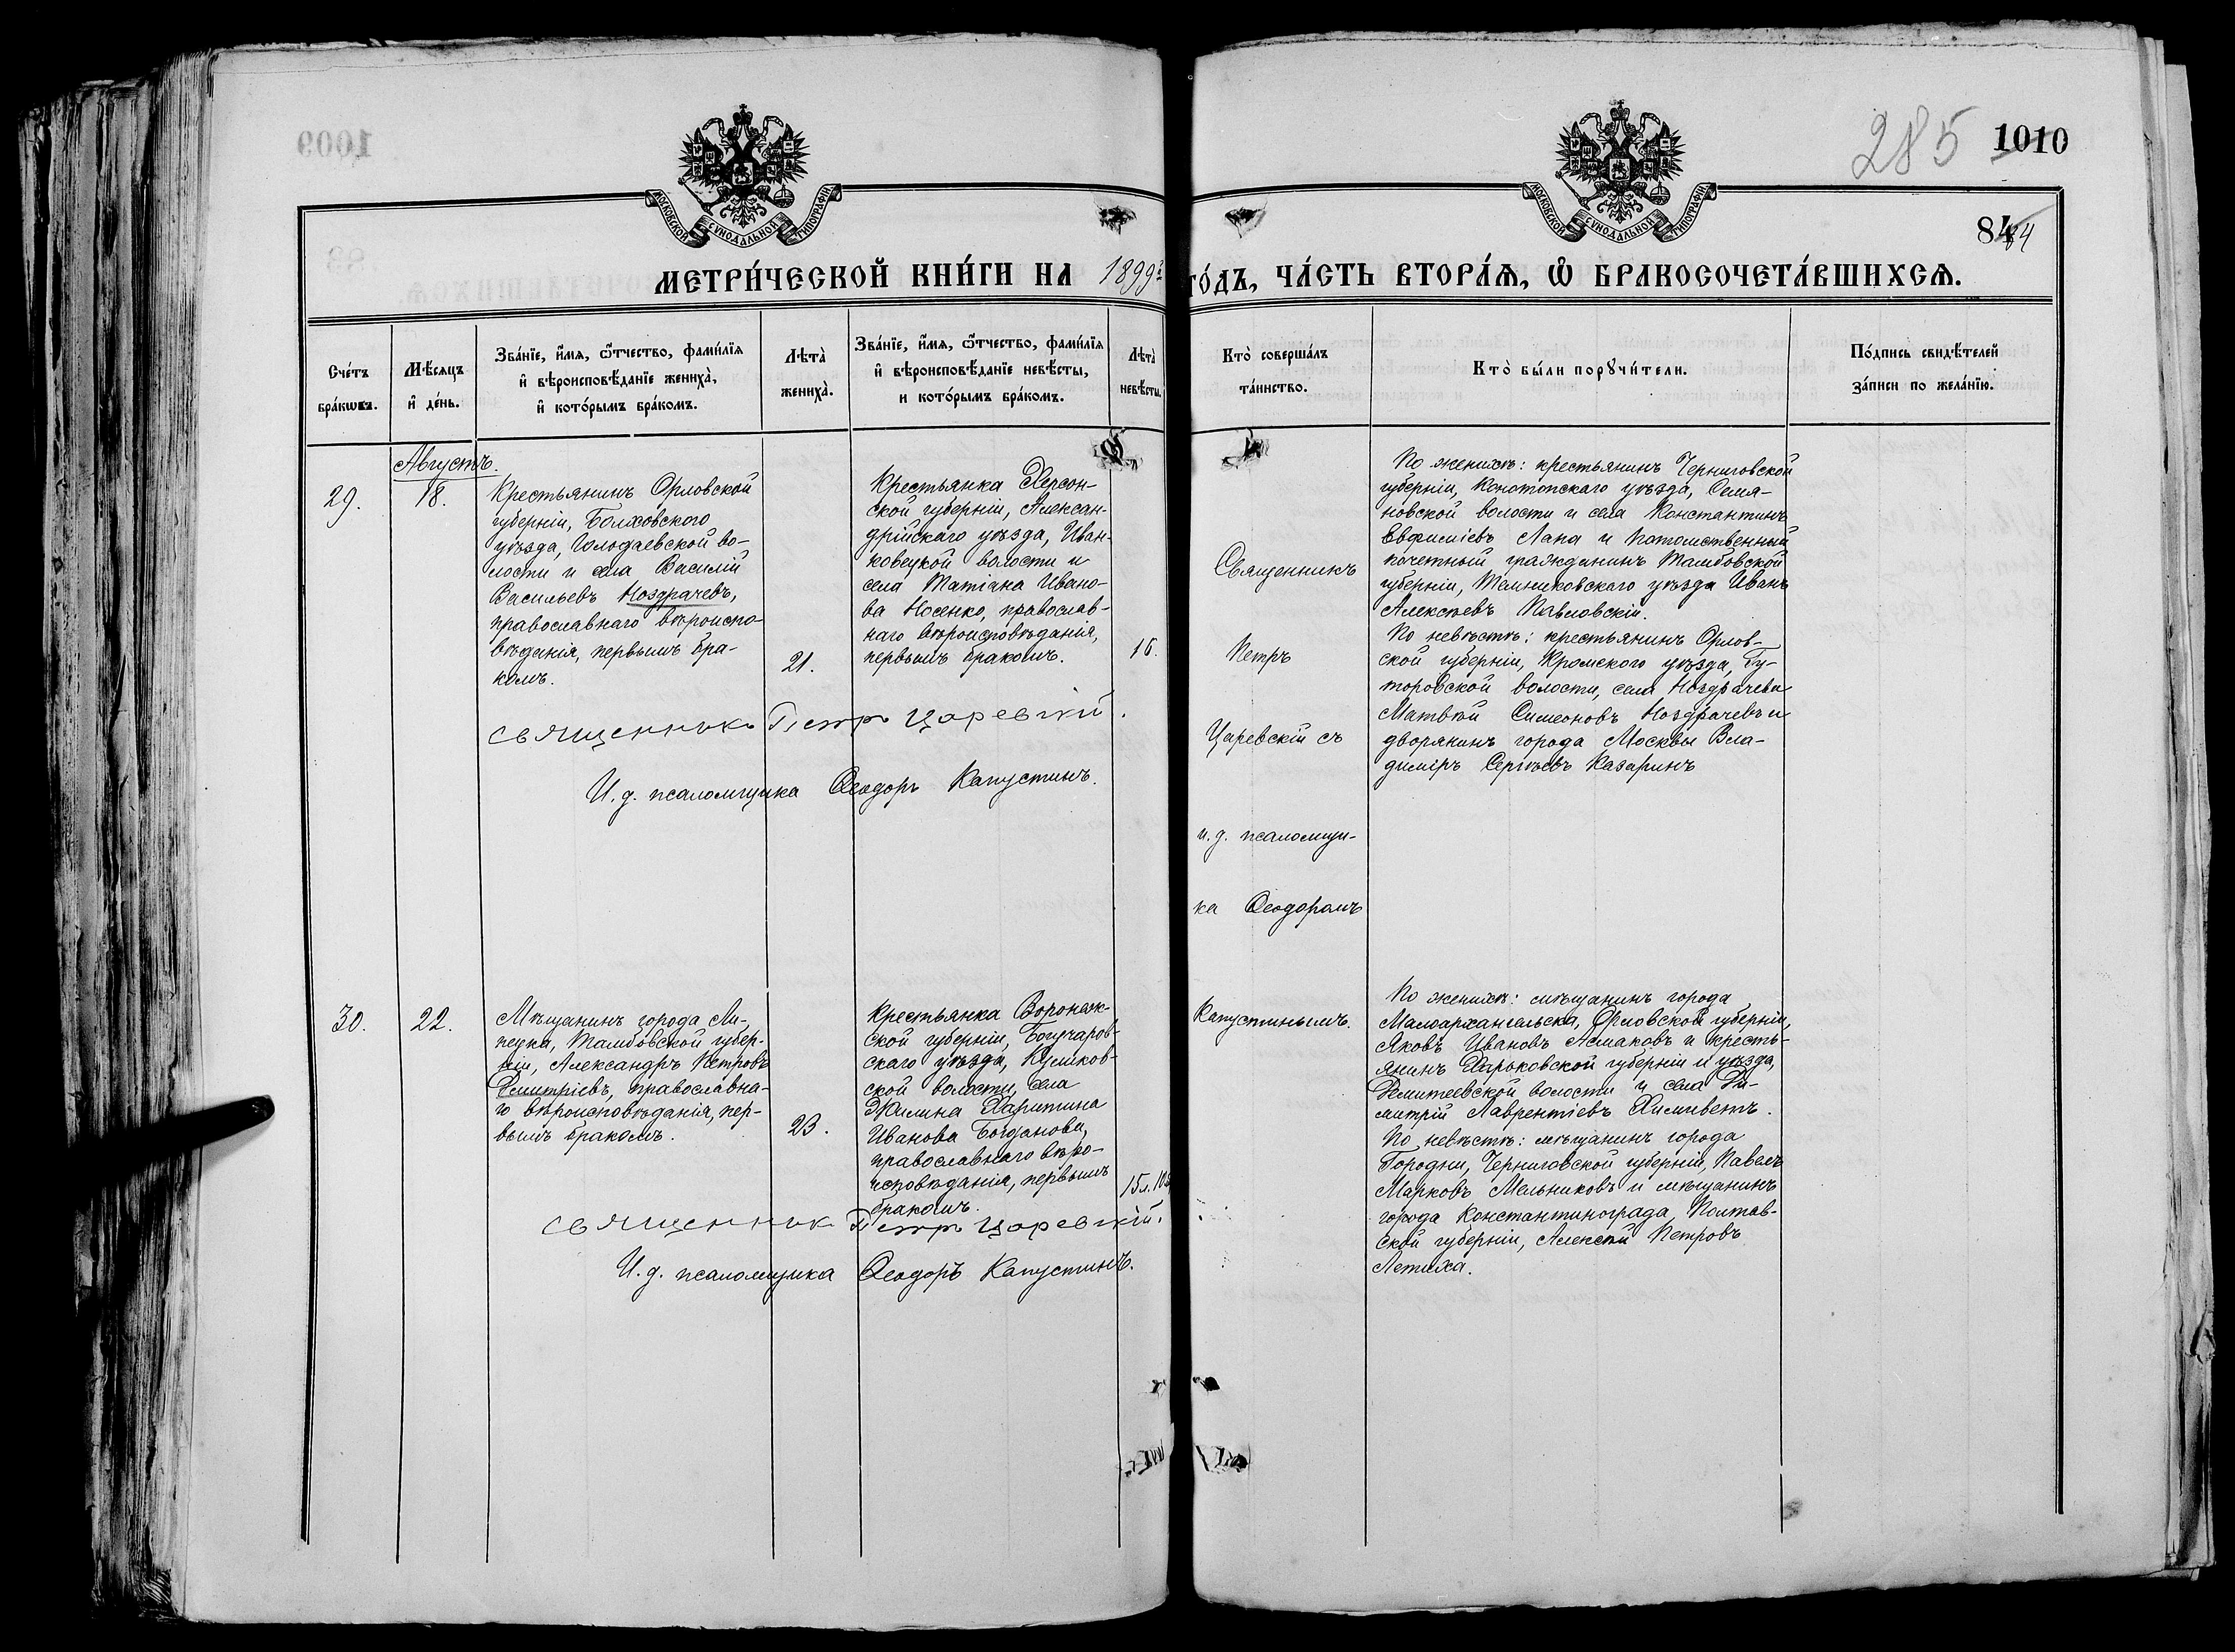 285 1010
84 84
МОСКОВСКОЙ СУНОДАЛЬНОЙ ТИПОГРАФІИ
МОСКОВСКОЙ СУНОДАЛЬНОЙ ТИПОГРАФІИ
МЕТРИ́ЧЕСКОЙ КНИ́ГИ НА 1899 ГО́ДЪ, ЧА́СТЬ ВТОРА́Ѧ, Ѡ҆ БРАКОСОЧЕТА́ВШИХСѦ.
Сче́тъ
бра́кѡвъ.
Мѣ́сѧцъ
и҆ де́нь.
Зва́нїе, и҆́мѧ, ѻ҆́тчество, фами́лїѧ
и҆ вѣроисповѣ́данїе жениха̀,
и҆ кото́рымъ бра́комъ.
Лѣта̀
жениха̀.
Зва́нїе, и҆́мѧ, ѻ҆́тчество, фами́лїѧ
и҆ вѣроисповѣ́данїе невѣ́сты,
и кото́рымъ бра́комъ.
Лѣта̀
невѣ́сты.
Кто̀ соверша́лъ
та́инство.
Кто̀ бы́ли порꙋчи́тели.
По́дпись свидѣ́телей
за́писи по жела́нїю.
Августъ.
29.
18.
Крестьянинъ Орловской
губерніи, Болховского
уѣзда, Голодаевской во-
лости и села Василій
Васильевъ Ноздрачевъ,
православнаго вѣроиспо-
вѣданія, первымъ бра-
комъ.
21.
Крестьянка Херсон-
ской губерніи, Алексан-
дрійскаго уѣзда, Иван-
ковецкой волости и
села Татіана Ивано-
ва Носенко, православ-
наго вѣроисповѣданія,
первымъ бракомъ.
16.
Священникъ
Петръ
Царевскій съ
и. д. псаломщи-
ка Ѳеодоромъ
Капустинымъ.
По женихѣ: крестьянинъ Черниговской
губерніи, Конотопскаго уѣзда, Семя-
новской волости и села Константинъ
Евфиміевъ Лапа и потомственный
почетный гражданинъ Тамбовской
губерніи, Темниковскаго уѣзда Иванъ
Алексѣевъ Павловскій.
По невѣстѣ: крестьянинъ Орлов-
ской губерніи, Кромского уѣзда, Гу-
торовской волости, села Ноздрачева
Матвѣй Симеоновъ Ноздрачевъ и
дворянинъ города Москвы Вла-
диміръ Сергѣевъ Казаринъ
священникъ Петръ Царевскій.
И. д. псаломщика Ѳеодоръ Капустинъ.
30.
22.
Мѣщанинъ города Ли-
пецка, Тамбовской губер-
ніи, Александръ Петровъ
Дмитріевъ, православна-
го вѣроисповѣданія, пер-
вымъ бракомъ.
23.
Крестьянка Воронеж-
ской губерніи, Богучаров-
скаго уѣзда,
ской волости, села
Харитина
Иванова Богданова,
православнаго вѣро-
исповѣданія, первымъ
бракомъ.
15 л. 10
По женихѣ: мѣщанинъ города
Малоархангельска, Орловской губерніи,
Яковъ Ивановъ Асмаковъ и кресть-
янинъ Харьковской губерніи и уѣзда,
волости и села Ди-
митрій Лаврентіевъ
По невѣстѣ: мѣщанинъ города
Городни, Черниговской губерніи, Павелъ
Марковъ Мельниковъ и мѣщанинъ
города Константинограда, Полтав-
ской губерніи, Алексѣй Петровъ
Летиха.
священникъ Петръ Царевскій.
И. д. псаломщика Ѳеодоръ Капустинъ.